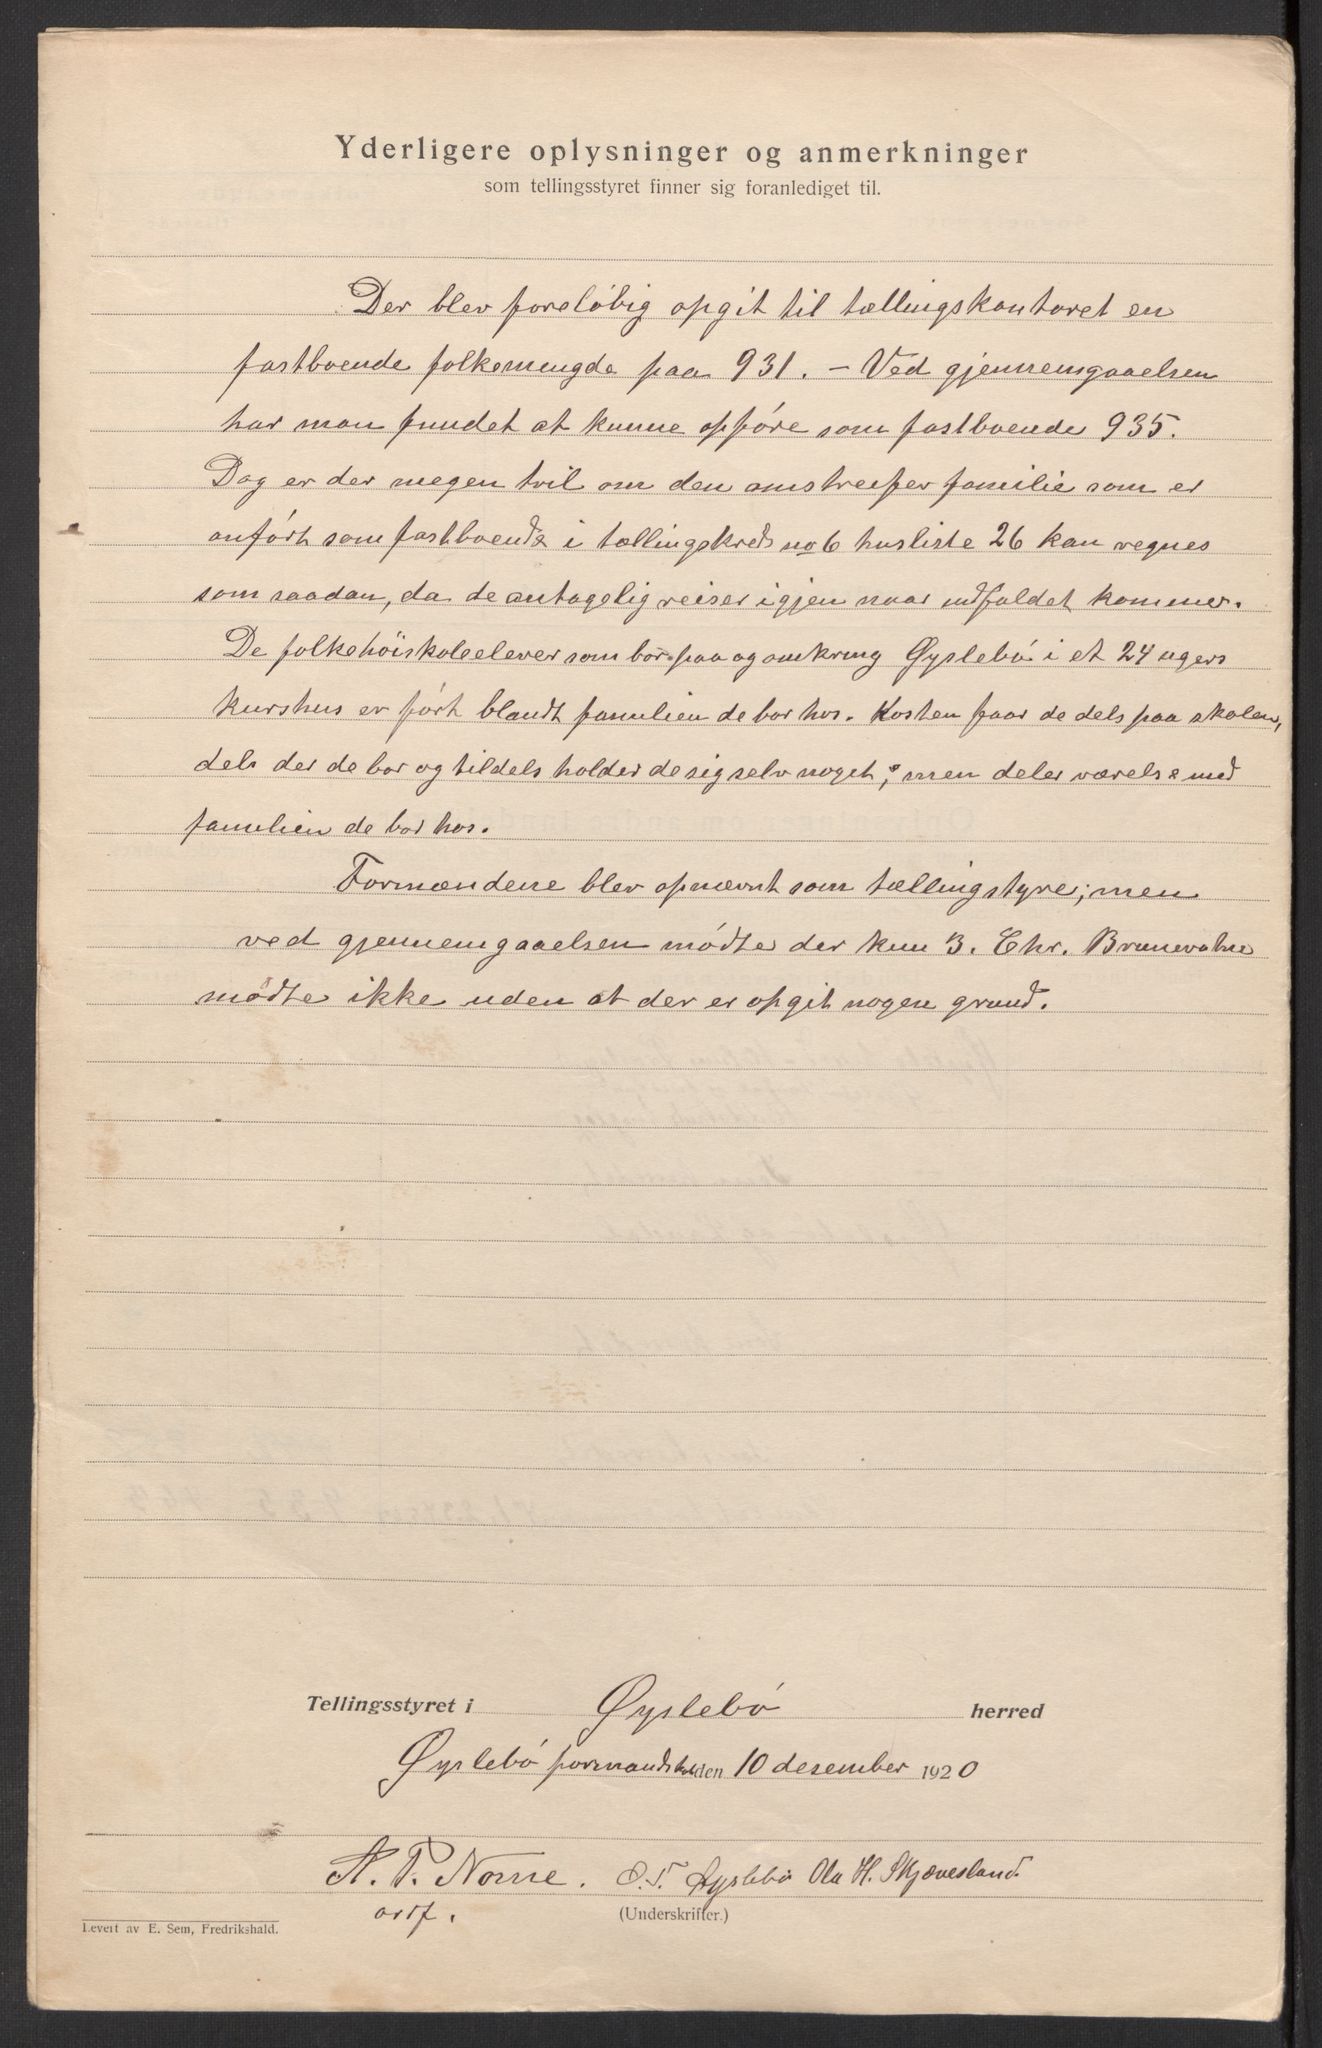 Yderligere oplysninger og anmerkninger
som tellingsstyret finner sig foranlediget til.
Der blev foreløbig opgit til tællingskontoret en
fastboende folkemengde paa 931. – Ved gjennemgaaelsen
har man fundet at kunne opføre som fastboende 935.
Dog er der megen tvil om den omstreifer familie som er
anført som fastboende i tællingskreds no 6 husliste 26 kan regnes
som saadan, da de antagelig reiser igjen naar kommer.
De folkehöiskoleelever som bor paa og omkring Øyslebø i et 24 ugers
kurshus er ført blandt familien de bor hos. Kosten faar de dels paa skolen,
dels der de bor og tildels holder de sig selv noget; men deler værelse med
familien de bor hos.
Formændene blev opnævnt som tællingstyre; men
ved gjennemgaaelsen mødte der kun 3. Chr.
mødte ikke uden at der er opgit nogen grund.
Tellingsstyret i Øyslebø herred
Øyslebø den 10 desember 1920
A. P. Nome. O. T. Øyslebø Ola H. Skjævesland
ordf.
(Underskrifter.)
Levert av E. Sem, Fredrikshald.